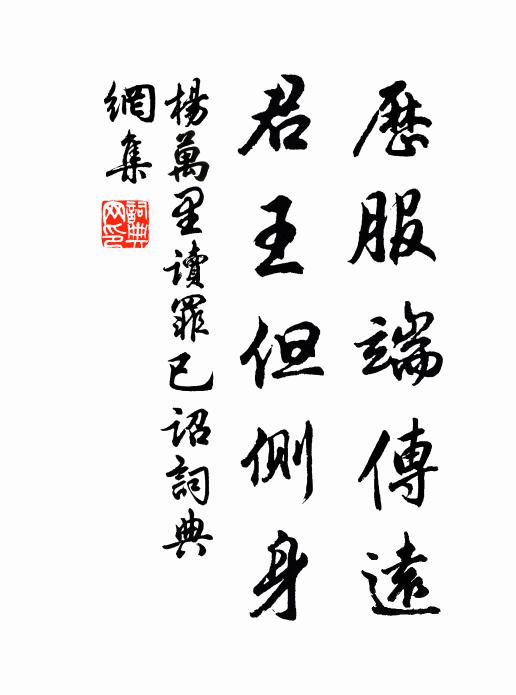 歷服端傳遠
君王但側身
楊萬里讀罪已詔詞典
網集
詞典
网印